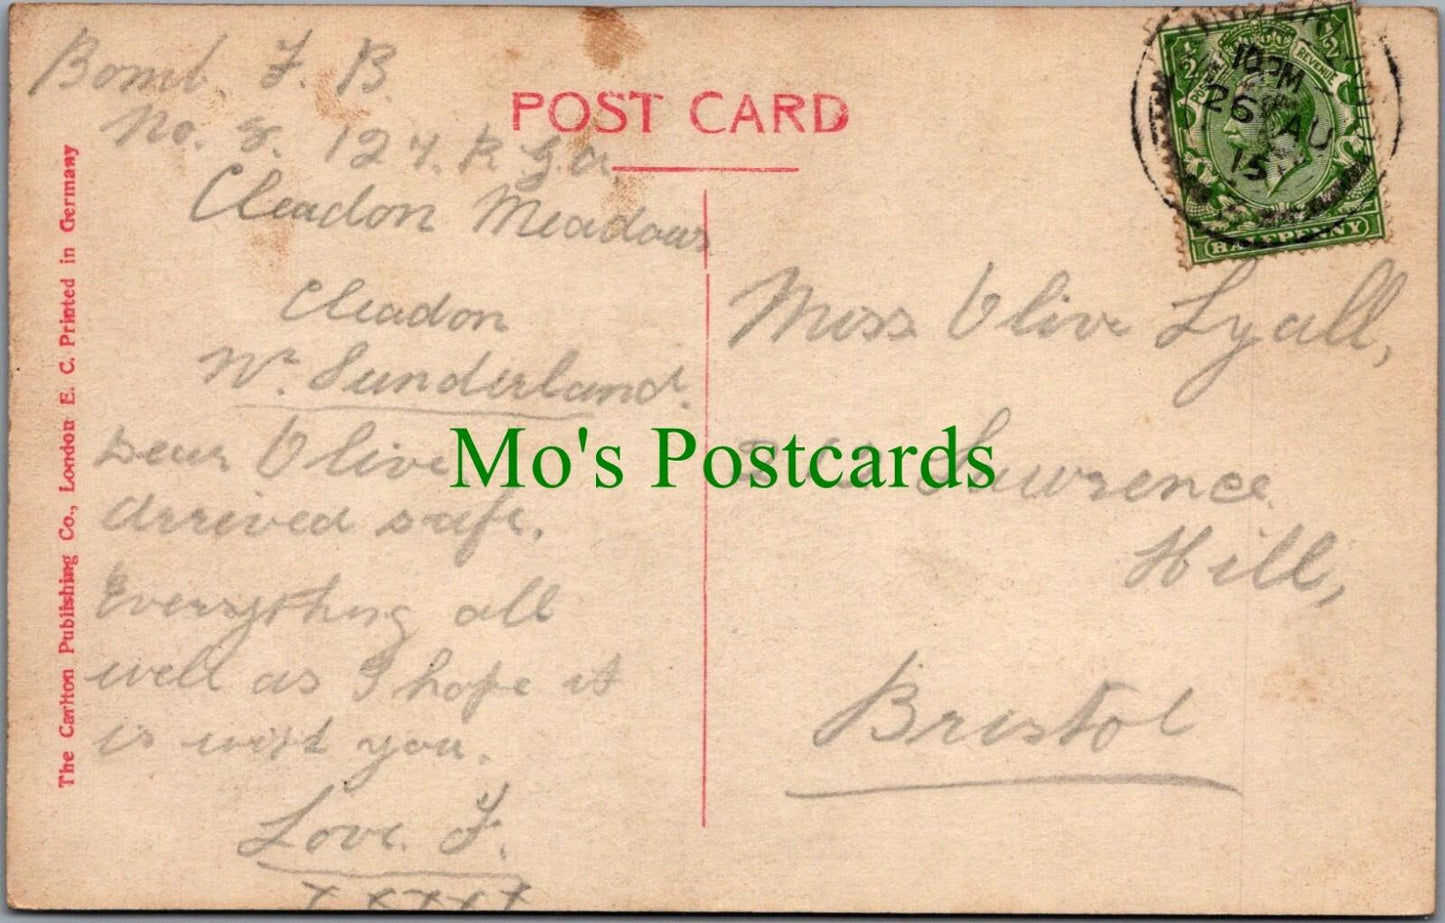 Bomb. F. B.
No. 124. R.G.A.
Cleadon Meadows
Cleadon
Nr. Sunderland.
Dear Olive
Arrived safe.
Everything all
well as I hope it
is with you.
Love. F.
POST CARD
10 PM
26 AU
15
½
REVENUE
½
HALFPENNY
Miss Olive Lyall,
Lawrence
Hill,
Bristol
Mo's Postcards
The Carlton Publishing Co., London E. C. Printed in Germany